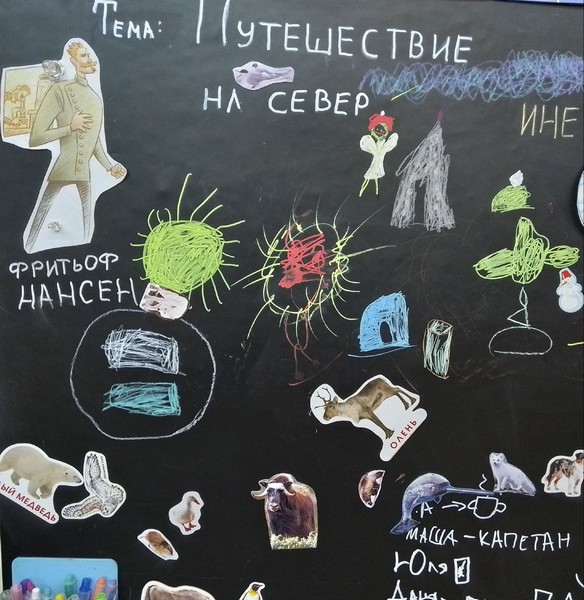 Тема: Путешествие
на Север
ИНЕ
Фритьоф
Нансен
ОЛЕНЬ
ЫЙ МЕДВЕДЬ
А →
Маша - капетан
Юля